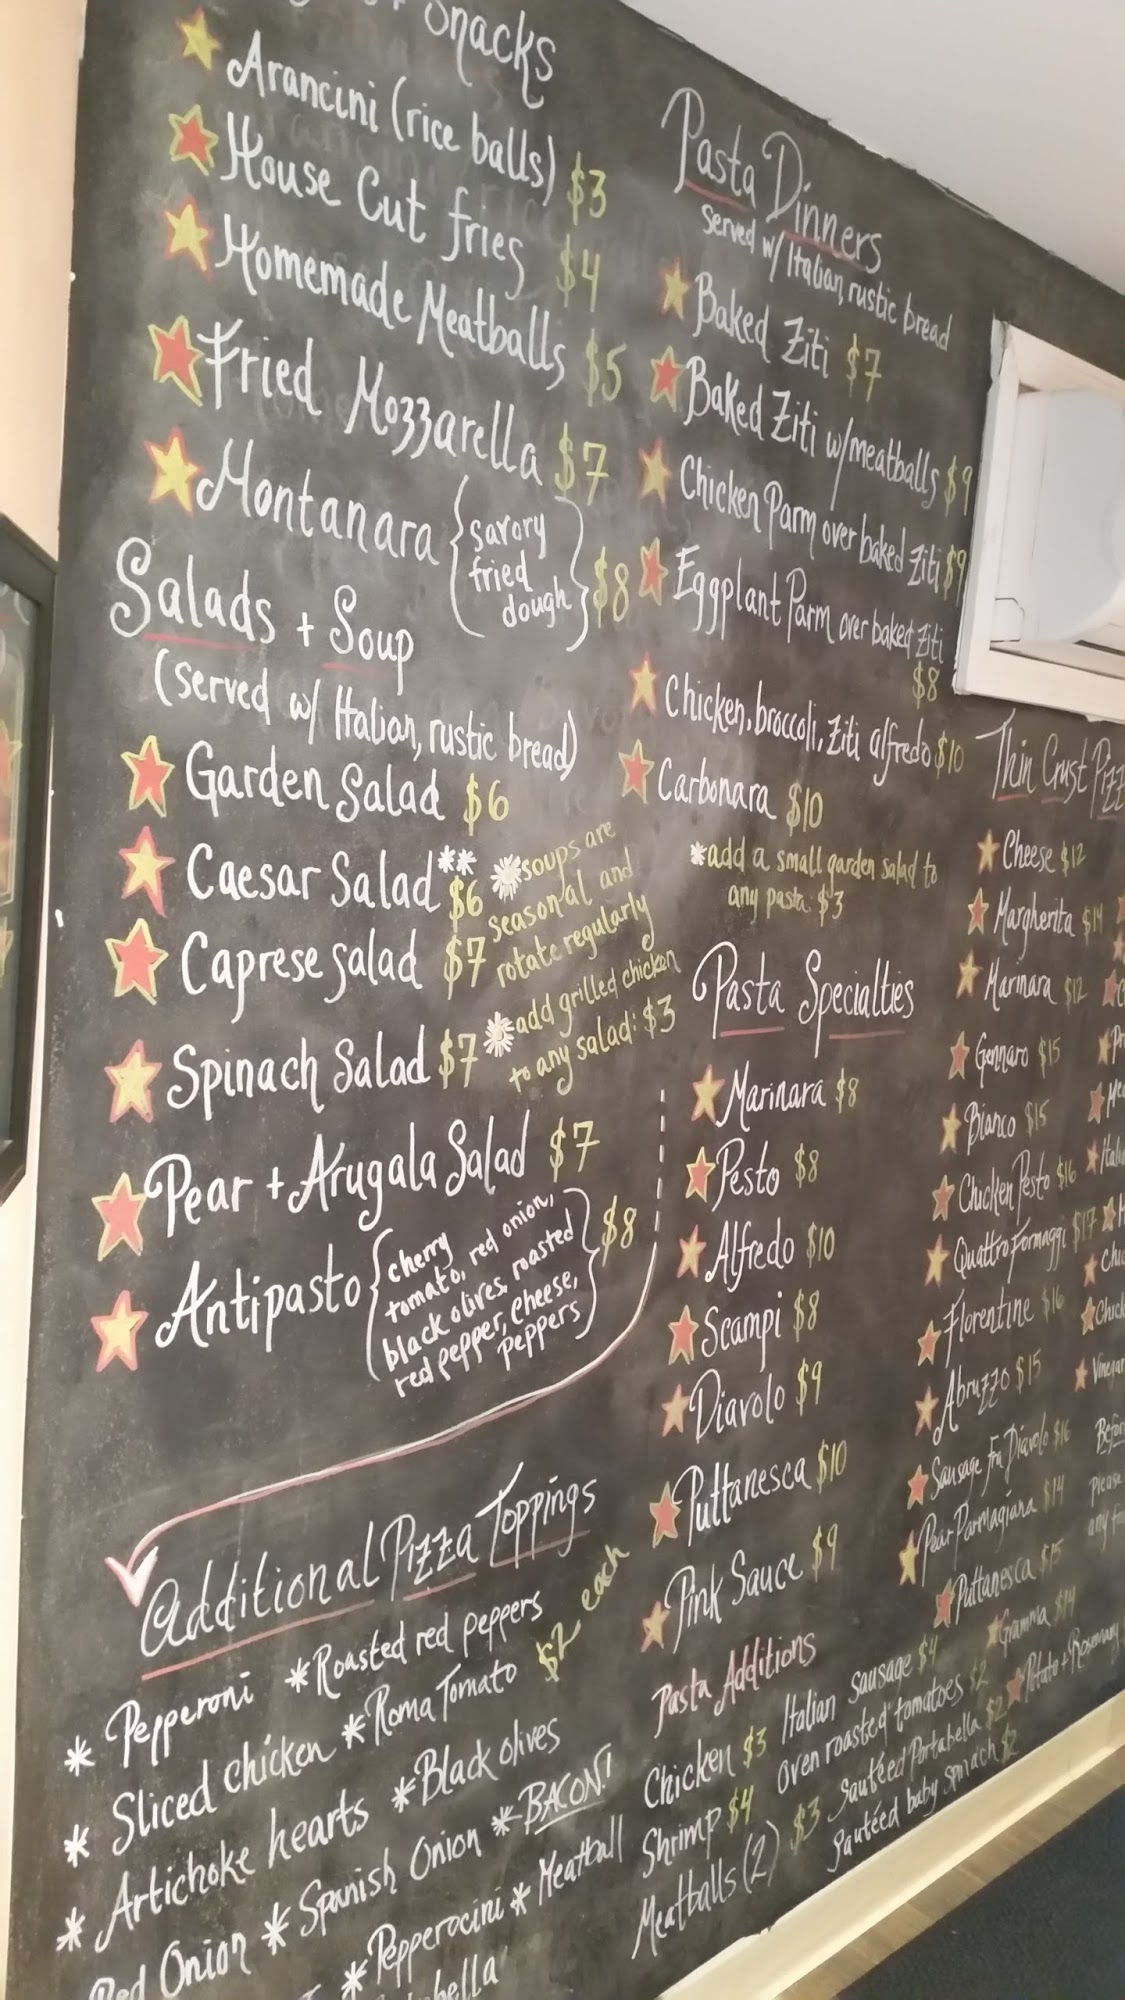 Snacks
Arancini (rice balls) $3
House Cut fries $4
Homemade Meatballs $5
Fried Mozzarella $7
Montanara { savory
fried
dough } $8
Salads + Soup
(served w/ Italian, rustic bread)
Garden Salad $6
Caesar Salad** $6
Caprese salad $7
Spinach Salad $7
*soups are
seasonal and
rotate regularly
*add grilled chicken
to any salad: $3
Pear + Arugala Salad $7
Antipasto { cherry
tomato, red onion,
black olives, roasted
red pepper, cheese,
peppers } $8
Additional Pizza Toppings
$2 each
* Pepperoni * Roasted red peppers
* Sliced chicken * Roma Tomato
* Artichoke hearts * Black olives
Red Onion * Spanish Onion * BACON!
* Pepperocini * Meatball
Pasta Dinners
Served w/ Italian, rustic bread
Baked Ziti $7
Baked Ziti w/meatballs $9
Chicken Parm over baked Ziti $9
Eggplant Parm over baked Ziti
$8
Chicken, broccoli, Ziti alfredo $10
Carbonara $10
*add a small garden salad to
any pasta: $3
Pasta Specialties
Marinara $8
Pesto $8
Alfredo $10
Scampi $8
Diavolo $9
Puttanesca $10
Pink Sauce $9
Pasta Additions
Chicken $3
Shrimp $4
Meatballs (2) $3
Italian Sausage $4
oven roasted tomatoes $2
Sautéed Portabella $2
Sautéed baby spinach $2
Thin Crust
Cheese $12
Margherita $14
Marinara $12
Gennaro $15
Bianco $15
Chicken Pesto $16
Quattro Formaggi $17
Florentine $16
Abruzzo $15
Sausage Fra Diavolo $16
Pear Parmagiana $14
Puttanesca $15
Gramma $14
Potato + Rosemary
Please